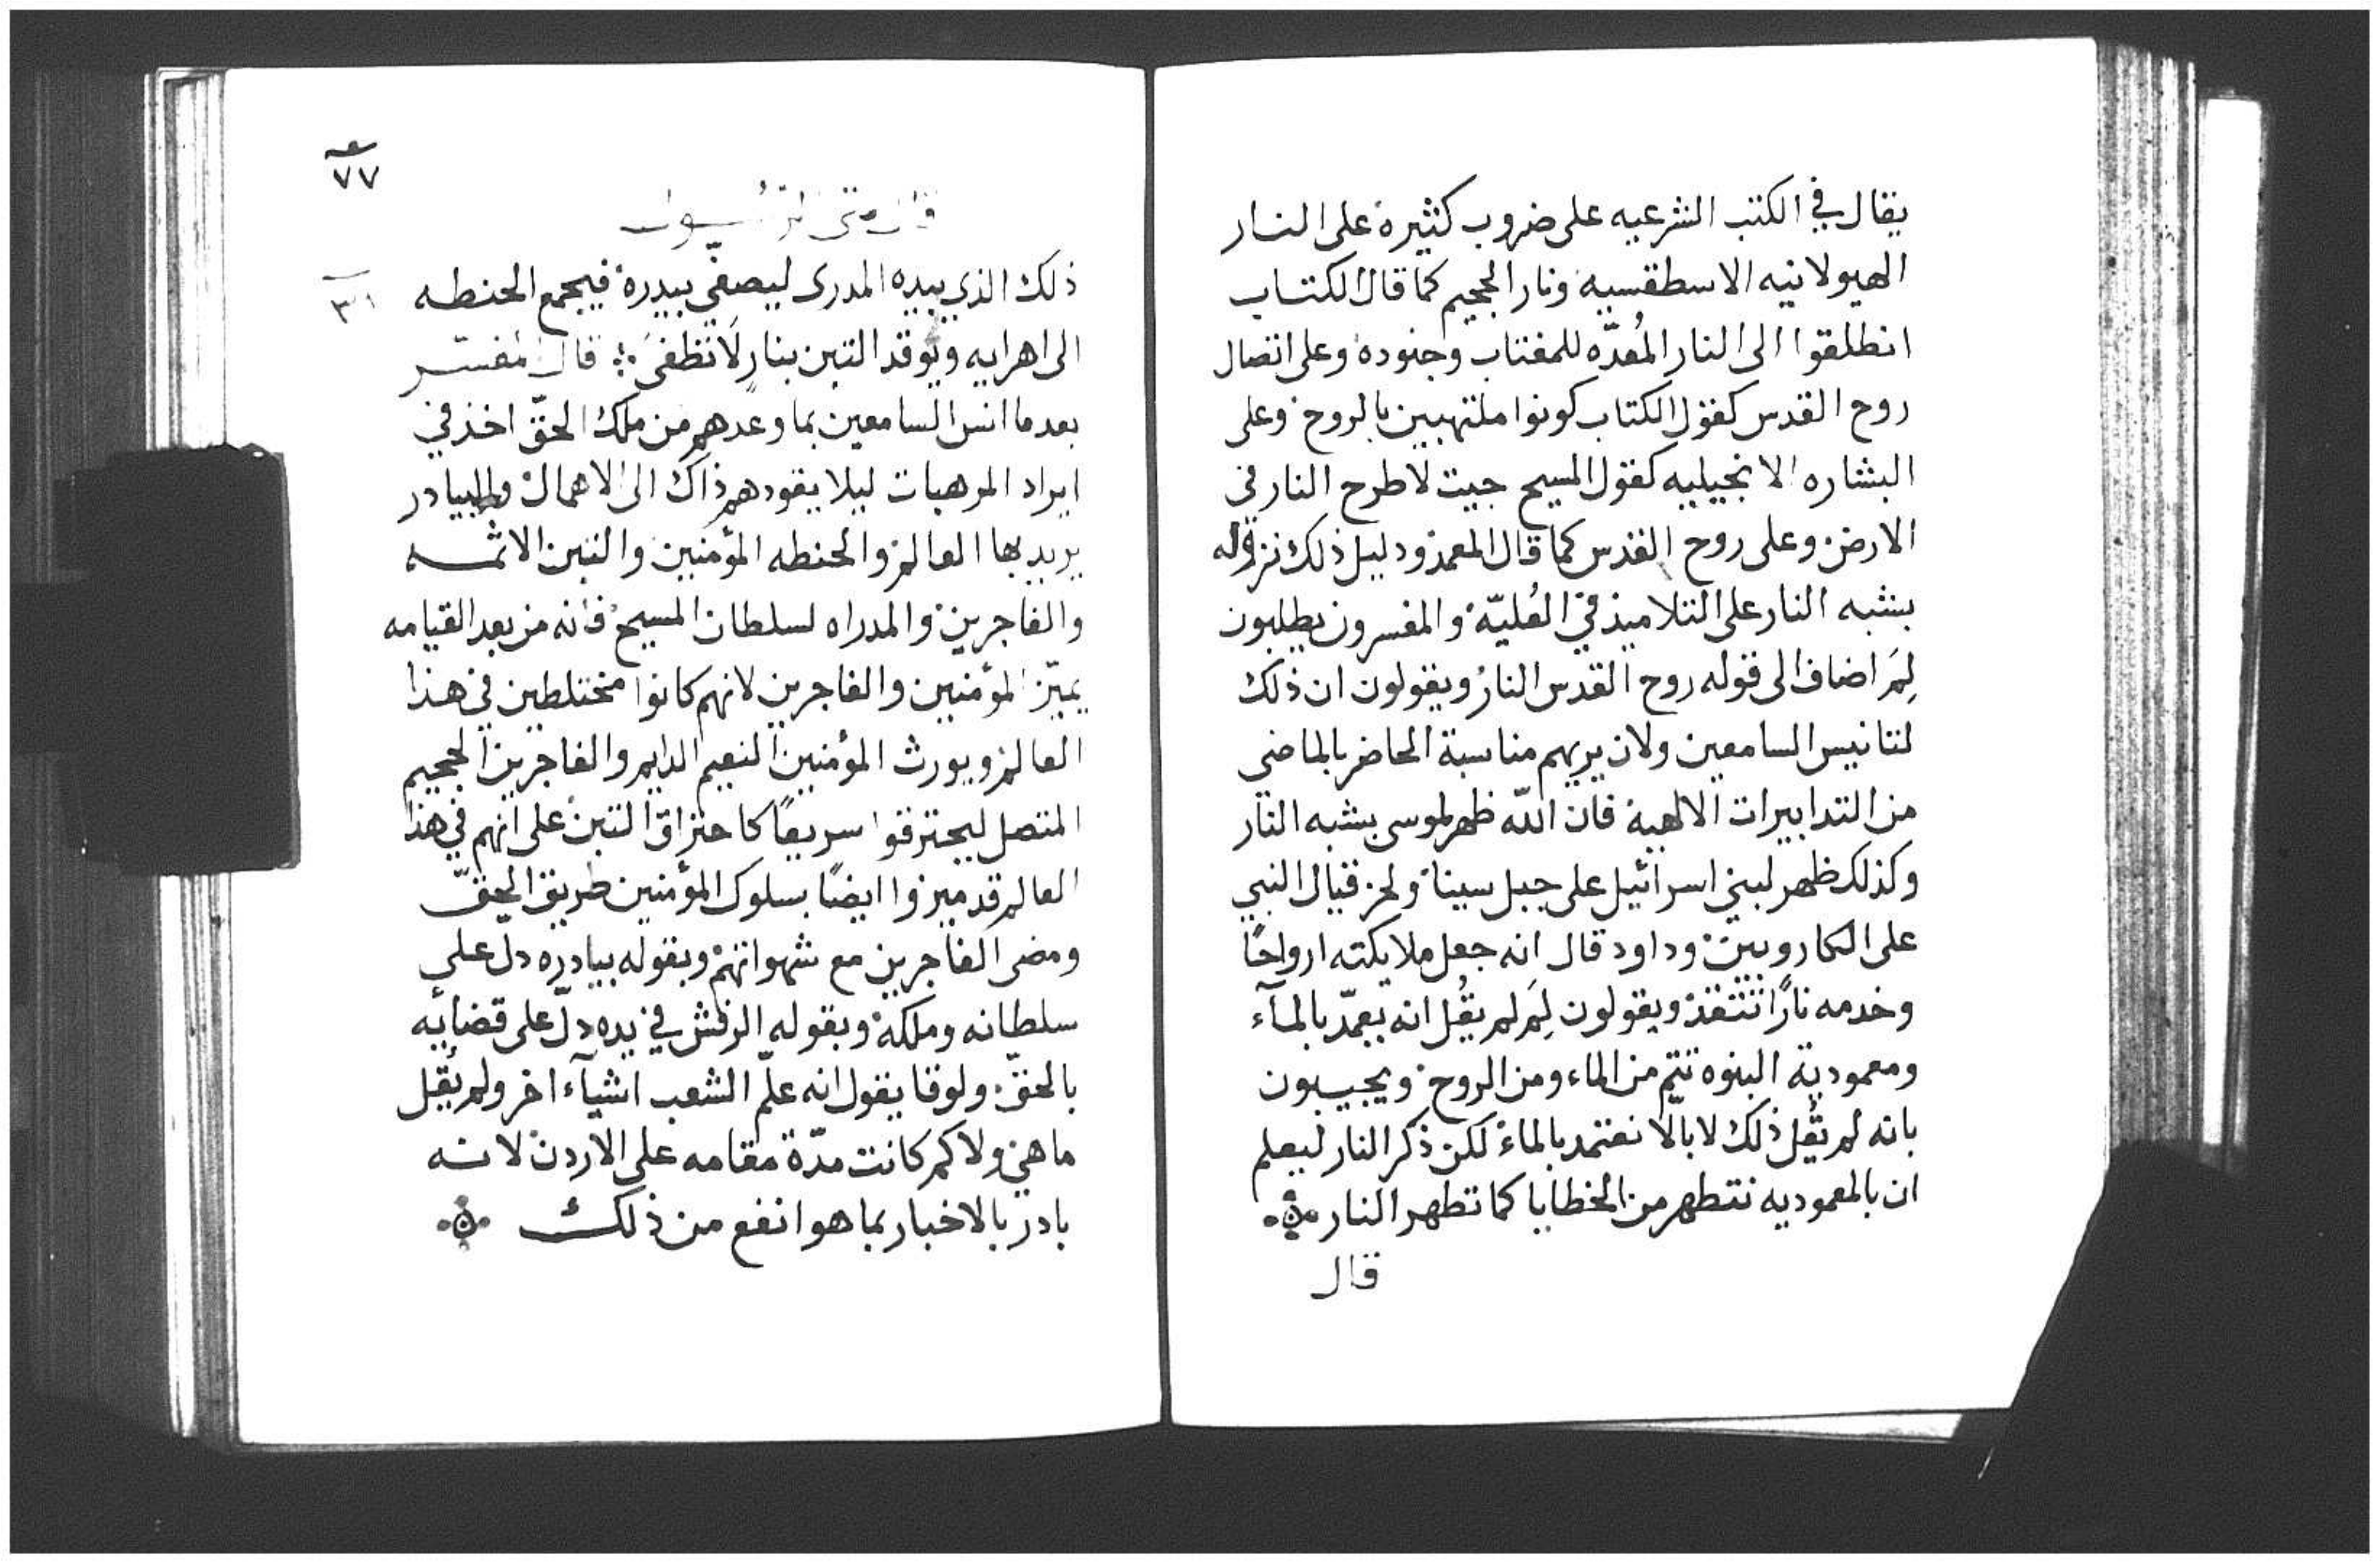 يقال في الكتب الشرعيه على ضروب كثيرة على النار
الهيولانيه الاسطقسيه ونار الجحيم كما قال الكتاب
انطلقوا الى النار المُعدّه للمغتاب وجنوده وعلى اتصال
روح القدس كقول الكتاب كونوا ملتهبين بالروح وعلى
البشاره الانجيليه كقول المسيح جيت لاطرح النار في
الارض وعلى روح القدس كما قال المعمد ودليل ذلك نزوله
بشبه النار على التلاميذ في العُليّة والمفسرون يطلبون
لِمَ اضاف الى قوله روح القدس النار ويقولون ان ذلك
لتانيس السامعين ولان يريهم مناسبة الحاضر بالماضي
من التدابيرات الالهية فان الله ظهر لموسى بشبه النار
وكذلك ظهر لبني اسرائيل على جبل سينا ولحزقيال النبي
على الكاروبين وداود قال انه جعل ملايكته ارواحًا
وخدمه نارًا تتقد ويقولون لِمَ لم يقُل انه يعمّد بالمآء
ومعمودية البنوه تتم من الماء ومن الروح ويجيبون
بانه لم يقُل ذلك لا بالّا نعتمد بالماء لكن ذكر النار ليعلم
ان بالمعموديه نتطهر من الخطايا كما تطهر النار
قال
٧٧
قال متى الرسول
٣١
ذلك الذي بيده المدرى ليصفي بيدرة فيجمع الحنطه
الى اهرايه ويوقد التبن بنارٍ لَا تطفىَ قال المفسر
بعد ما انس السامعين بما وعدهم من ملك الحقّ اخذ في
ايراد المرهبات ليلا يقودهم ذاك الى الاهمال والبيادر
يريد بها العالم والحنطه المؤمنين والتبن الاثمه
والفاجرين والمدراه لسلطان المسيح فانه من بعد القيامه
يميّز المؤمنين والفاجرين لانهم كانوا مختلطين في هذا
العالم ويورث المؤمنين النعيم الدايم والفاجرين الجحيم
المتصل ليحترقوا سريعًا كاحتراق التبن على انهم في هذا
العالم قد ميزوا ايضًا بسلوك المؤمنين طريق الحقّ
ومضى الفاجرين مع شهواتهم وبقوله بيادره دل على
سلطانه وملكه وبقوله الرفش في يده دلّ على قضايه
بالحقّ ولوقا يقول انه علّم الشعب اشيآء اخر ولم يقُل
ما هي ولا كم كانت مدّة مقامه على الاردن لانه
بادر بالاخبار بما هو انفع من ذلك